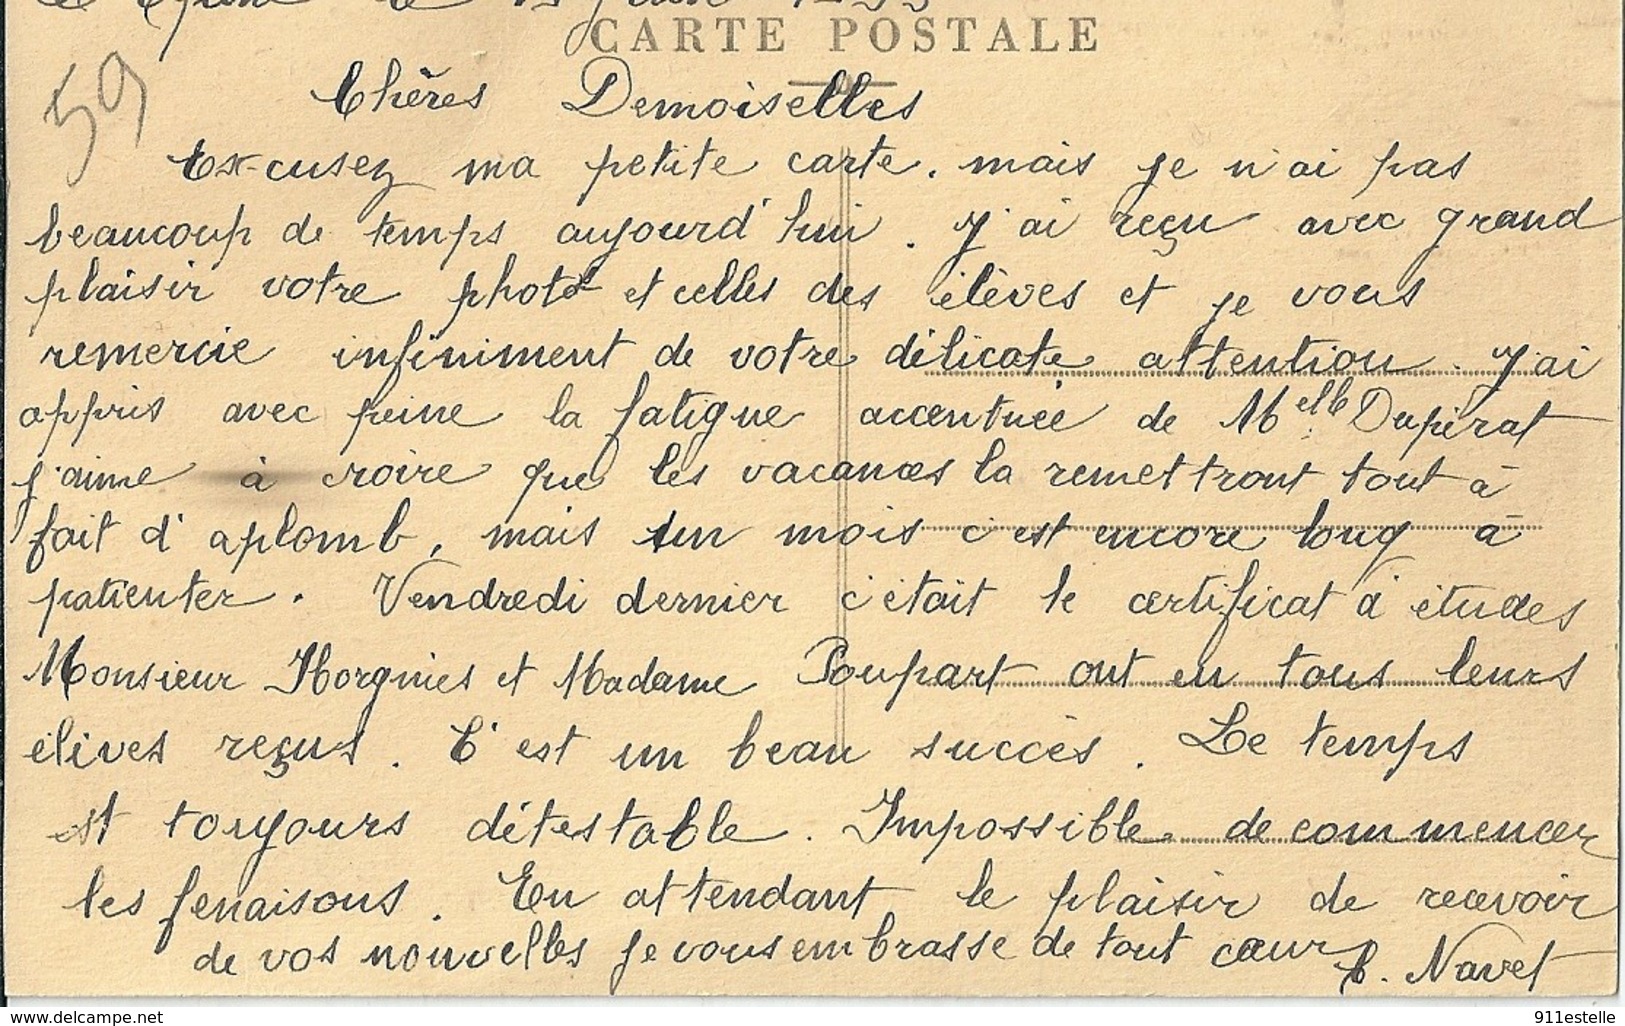 CARTE POSTALE
59
Chères Demoiselles
Excusez ma petite carte, mais je n'ai pas
beaucoup de temps aujourd'hui. J'ai reçu avec grand
plaisir votre photo et celles des élèves et je vous
remercie infiniment de votre délicate attention. J'ai
appris avec peine la fatigue accentuée de Melle Dupérat
j'aime à croire que les vacances la remettront tout à
fait d'aplomb, mais un mois c'est encore long à
patienter. Vendredi dernier c'était le certificat d'études
Monsieur Horgnies et Madame Poupart ont eu tous leurs
élèves reçus. C'est un beau succès. Le temps
est toujours détestable. Impossible de commencer
les fenaisons. En attendant le plaisir de recevoir
de vos nouvelles je vous embrasse de tout cœur
C. Navet
www.delcampe.net
911estelle